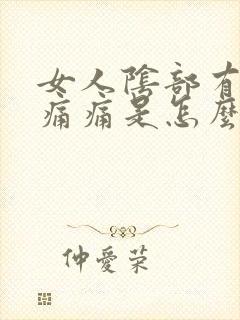 女人陰部有
痛痛是怎麼
仲愛榮